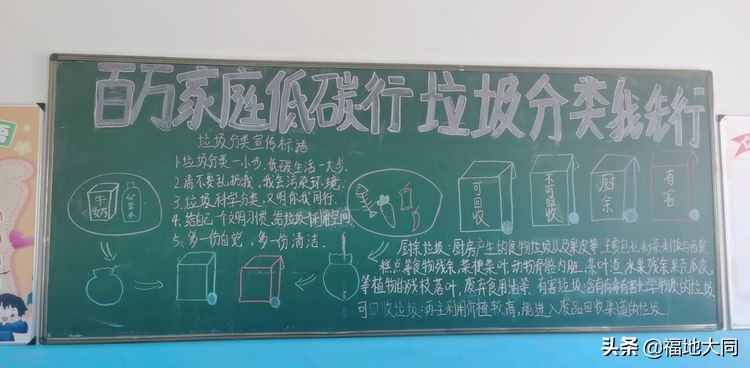 百万家庭低碳行 垃圾分类我先行
垃圾分类宣传标语
1.垃圾分类一小步，低碳生活一大步.
2.请不要乱扔我，我会污染环境.
3.垃圾科学分类，文明你我同行.
4.给自己一个文明习惯，给垃圾一个使用空间
5.多一份自觉，多一份清洁.
牛奶
矿泉水
可回收
不可回收
厨余
有害
厨余垃圾：厨房产生的食物垃圾以及果皮等，主要包括
糕点等食物残余，菜梗菜叶，动物骨骼内脏，茶叶渣，水果残余，果壳瓜皮，
等植物的残枝落叶，废弃食用油等，有害垃圾：含有有毒有害化学物质的垃圾
可回收垃圾：再主利用价植较高，能进入废品回收渠道的垃圾
头条 @福地大同